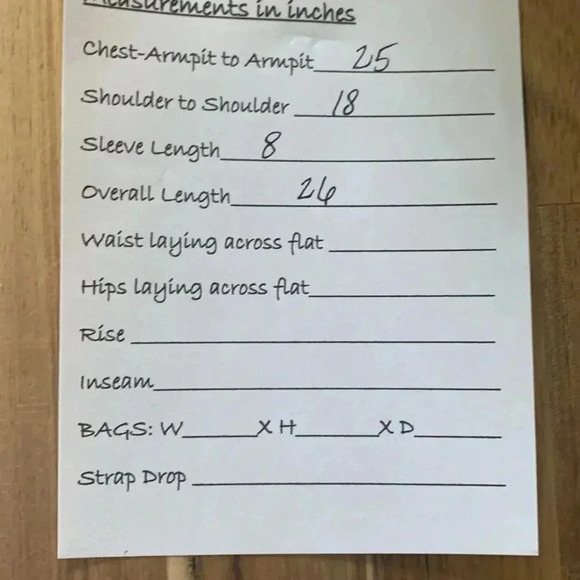 Measurements in inches
Chest-Armpit to Armpit 25
Shoulder to Shoulder 18
Sleeve Length 8
Overall Length 26
Waist laying across flat
Hips laying across flat
Rise
Inseam
BAGS: W X H X D
Strap Drop